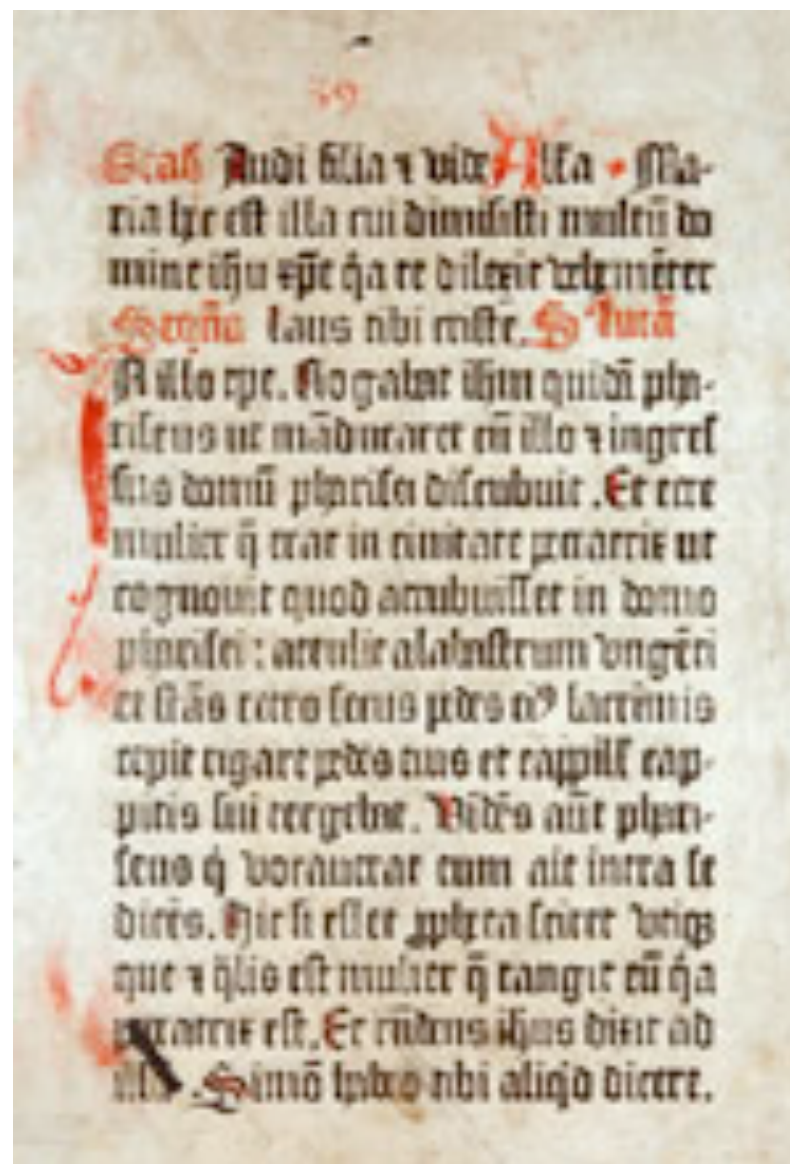 59
Grad̄ Audi filia ⁊ vide Alł'a Ma-
ria hec est illa cui dimisisti multū do
mine ihu xp̄e q̇a te dilexit vehemēter
Seqn̄a laus tibi criste. S' lucā
In illo tpe. Rogabat ihm quidā pha-
riseus ut māducaret cū illo ⁊ ingres
sus domū pharisei discubuit. Et ecce
mulier q̄ erat in ciuitate peccatrix ut
cognouit quod accubuisset in domo
pharisei: attulit alabastrum vngēti
et stās retro secus pedes eiꝰ lacrimis
cepit rigare pedes eius et cappill' cap-
pitis sui tergebat. Vidēs aūt phari-
seus q̇ vocauerat eum ait intra se
dicēs. Hic si esset ꝓpheta sciret vtiqꝫ
que ⁊ q̄lis est mulier q̄ tangit eū q̇a
peccatrix est. Et rn̄dens ihus dixit ad
illū. Simō habeo tibi aliqd dicere.